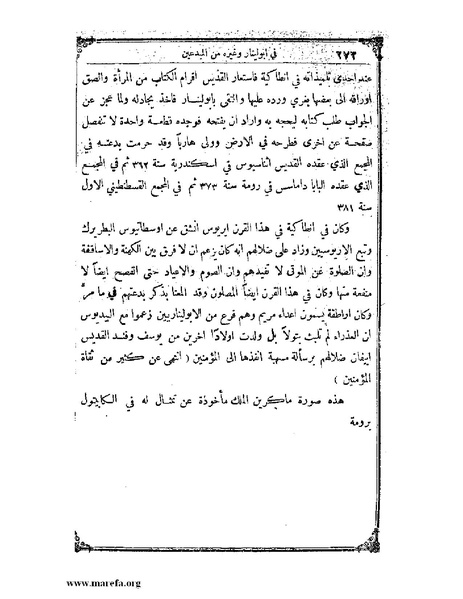 ٢٧٢ في ابولينار وغيره من المبدعين
عند احدى تلميذاته في انطاكية فاستعار القديس افرام الكتاب من المرأة والصق
اوراقه الى بعضها بغري ورده عليها والتقى بابولينار فاخذ يجادله ولما عجز عن
الجواب طلب كتابه ليحجه به واراد ان يفتحه فوجده قطعة واحدة لا تفصل
صفحة عن اخرى فطرحه في الارض وولى هارباً وقد حرمت بدعته في
المجمع الذي عقده القديس اثناسيوس في اسكندرية سنة ٣٦٢ ثم في المجمع
الذي عقده البابا داماسس في رومة سنة ٣٧٣ ثم في المجمع القسطنطيني الاول
سنة ٣٨١
وكان في انطاكية في هذا القرن ايريوس انشق عن اوسطاتيوس البطريرك
وتبع الاريوسيين وزاد على ضلالهم انه كان يزعم ان لا فرق بين الكهنة والاساقفة
وان الصلوة عن الموتى لا تفيدهم وان الصوم والاعياد حتى الفصح ايضاً لا
منفعة منها وكان في هذا القرن ايضاً المصلون وقد المعنا بذكر بدعتهم في ما مرّ
وكان اراطقة يسمون اعداء مريم وهم فرع من الابوليناريين زعموا مع البيديوس
ان العذراء لم تلبث بتولاً بل ولدت اولادًا اخرين من يوسف وفند القديس
ابيفان ضلالهم برسالة مسهبة انفذها الى المؤمنين ( انتهى عن كثير من ثقاة
المؤمنين )
هذه صورة ماكرين الملك مأخوذة عن تمثال له في الكابيتول
برومة
www.marefa.org